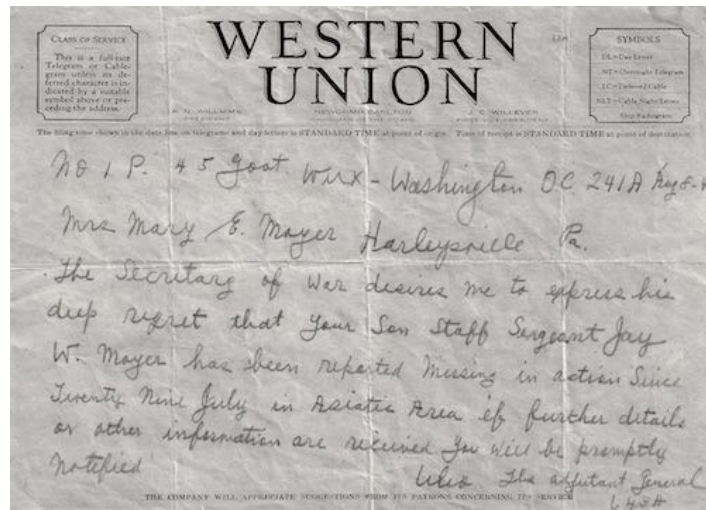 CLASS OF SERVICE
This is a full-rate
Telegram or Cable-
gram unless its de-
ferred character is in-
dicated by a suitable
symbol above or pre-
ceding the address.
WESTERN
UNION
R. B. WHITE
PRESIDENT
NEWCOMB CARLTON
CHAIRMAN OF THE BOARD
J. C. WILLEVER
FIRST VICE-PRESIDENT
SYMBOLS
DL=Day Letter
NT=Overnight Telegram
LC=Deferred Cable
NLT=Cable Night Letter
Ship Radiogram
The filing time shown in the date line on telegrams and day letters is STANDARD TIME at point of origin. Time of receipt is STANDARD TIME at point of destination
No 1 P. 45 Govt. WUX - Washington DC 241A Aug 8-4
Mrs Mary E. Moyer Harleysville Pa.
The Secretary of War desires me to express his
deep regret that your Son Staff Sergeant Jay
W. Moyer has been reported Missing in action Since
Twenty Nine July in Asiatic Area if further details
or other information are received You will be promptly
notified
Ulio The adjutant General
643A
THE COMPANY WILL APPRECIATE SUGGESTIONS FROM ITS PATRONS CONCERNING ITS SERVICE